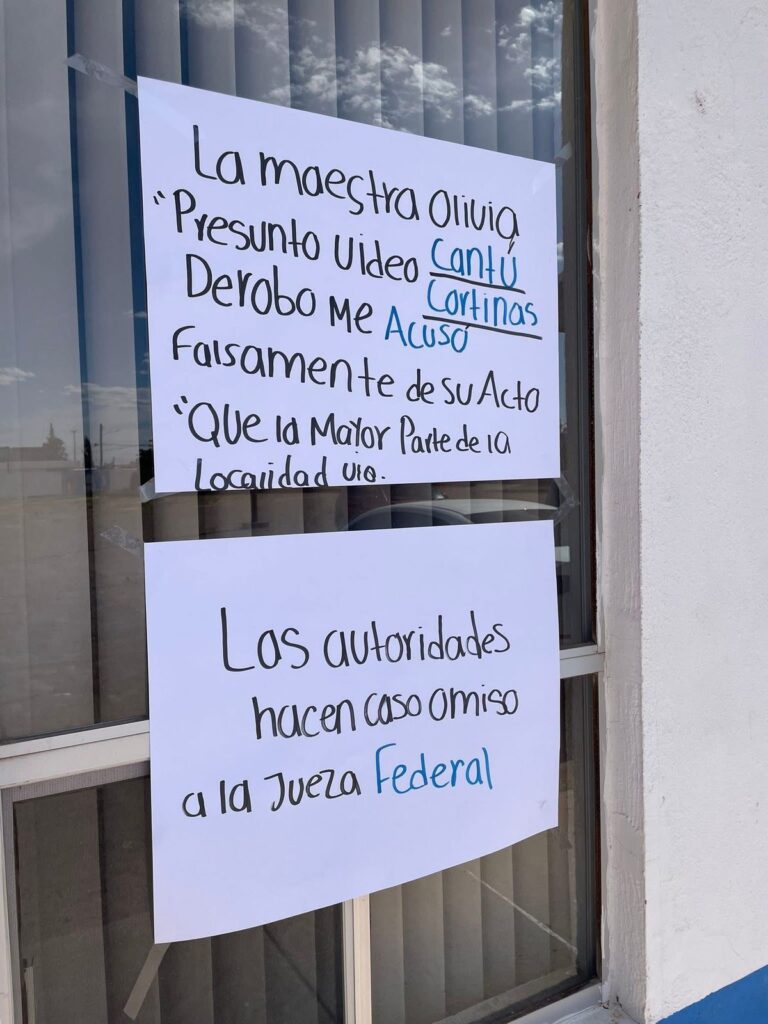 La maestra Olivia
"Presunto video Cantú
Derobo Me Acusó Cortinas
Falsamente de su Acto
"QUe la Mayor Parte de la
Localidad vio.
Las autoridades
hacen caso omiso
a la Jueza Federal